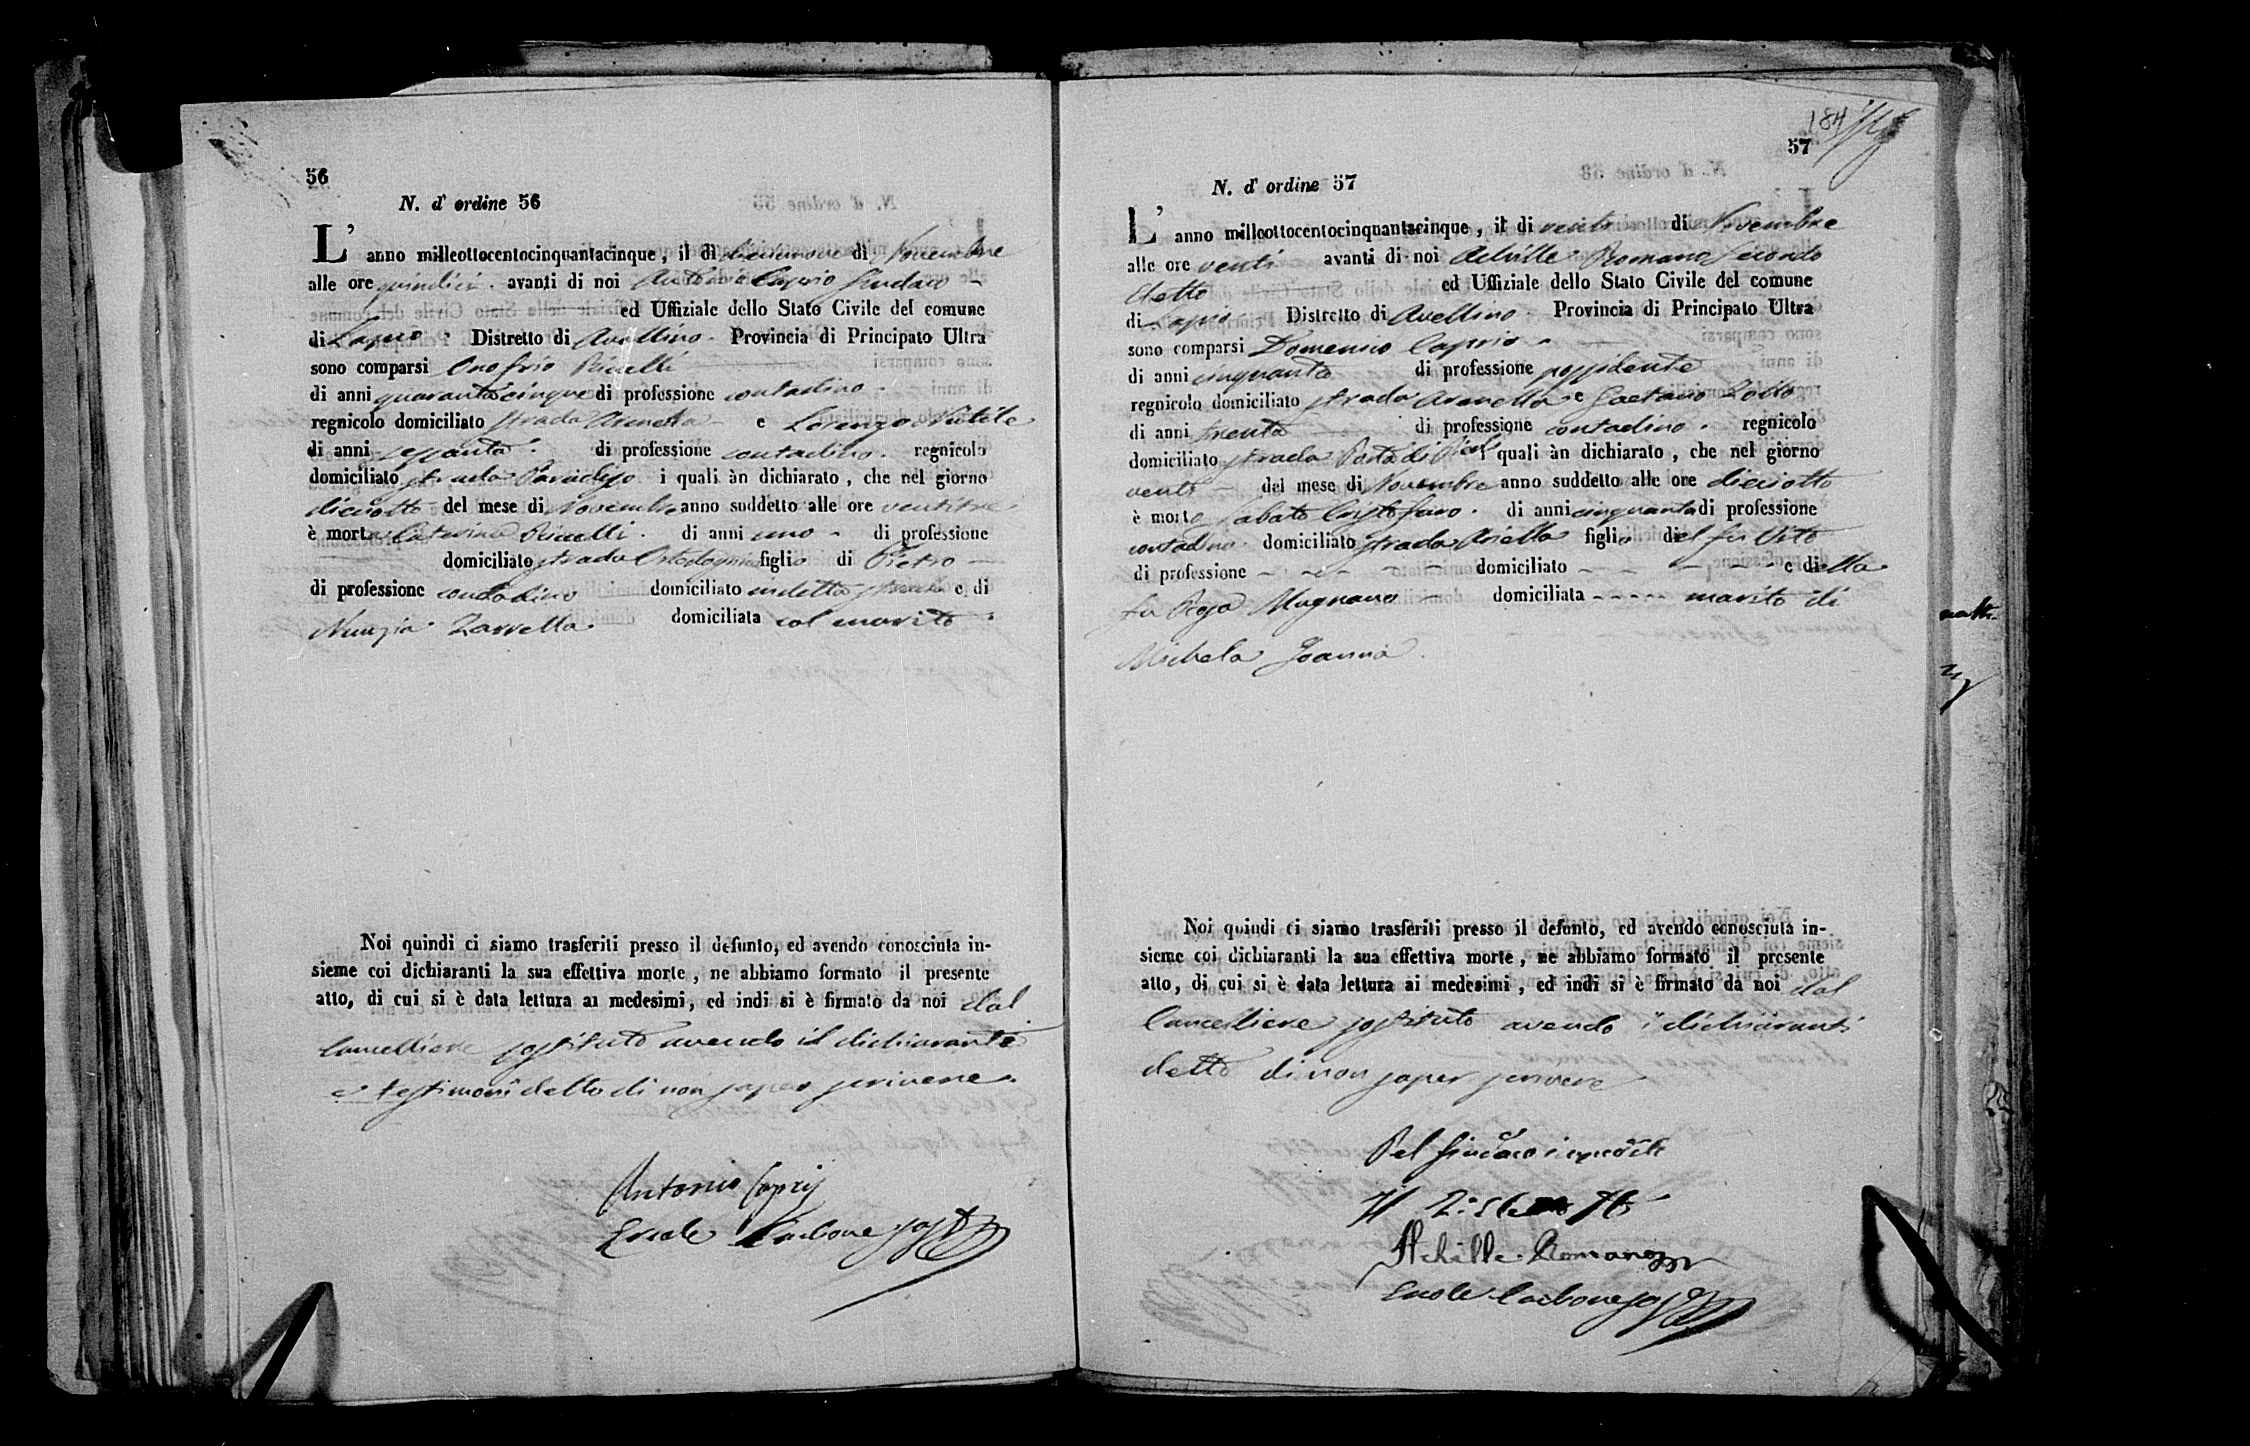 56
N. d' ordine 56
L' anno milleottocentocinquantacinque, il dì diecinnove di Novembre
alle ore quindici avanti di noi Antonio Caprio Sindaco
ed Uffiziale dello Stato Civile del comune
di Lapio Distretto di Avellino Provincia di Principato Ultra
sono comparsi Onofrio
di anni quarantacinque di professione contadino
regnicolo domiciliato strada e Lorenzo
di anni sessanta di professione contadino regnicolo
domiciliato strada i quali àn dichiarato, che nel giorno
dieciotto del mese di Novembre anno suddetto alle ore ventitre
è morta Caterina di anni uno di professione
domiciliato strada figlia di Pietro
di professione contadino domiciliato in detta strada e di
Nunzia Zarrella domiciliata col marito
Noi quindi ci siamo trasferiti presso il defunto, ed avendo conosciuta in-
sieme coi dichiaranti la sua effettiva morte, ne abbiamo formato il presente
atto, di cui si è data lettura ai medesimi, ed indi si è firmato da noi dal
Cancelliere sostituto avendo il dichiarante
e testimoni detto di non saper scrivere
Antonio Caprij
Ercole Carbone sost
184
57
N. d' ordine 57
L' anno milleottocentocinquantacinque, il dì venti di Novembre
alle ore venti avanti di noi Achille Romano Secondo
Eletto ed Uffiziale dello Stato Civile del comune
di Lapio Distretto di Avellino Provincia di Principato Ultra
sono comparsi Domenico Caprio
di anni cinquanta di professione possidente
regnicolo domiciliato strada Arenella e Gaetano Zollo
di anni trenta di professione contadino regnicolo
domiciliato strada Porta di i quali àn dichiarato, che nel giorno
venti del mese di Novembre anno suddetto alle ore dieciotto
è morto Sabato Cristofaro di anni cinquanta di professione
contadino domiciliato strada figlio del fu Vito
di professione domiciliato e della
fu Rosa Mugnano domiciliata marito di
Michela Joanna
Noi quindi ci siamo trasferiti presso il defunto, ed avendo conosciuta in-
sieme coi dichiaranti la sua effettiva morte, ne abbiamo formato il presente
atto, di cui si è data lettura ai medesimi, ed indi si è firmato da noi dal
Cancelliere sostituto avendo i dichiaranti
detto di non saper scrivere
Pel Sindaco impedito
Il 2:
Achille Romano
Ercole Carbone sost